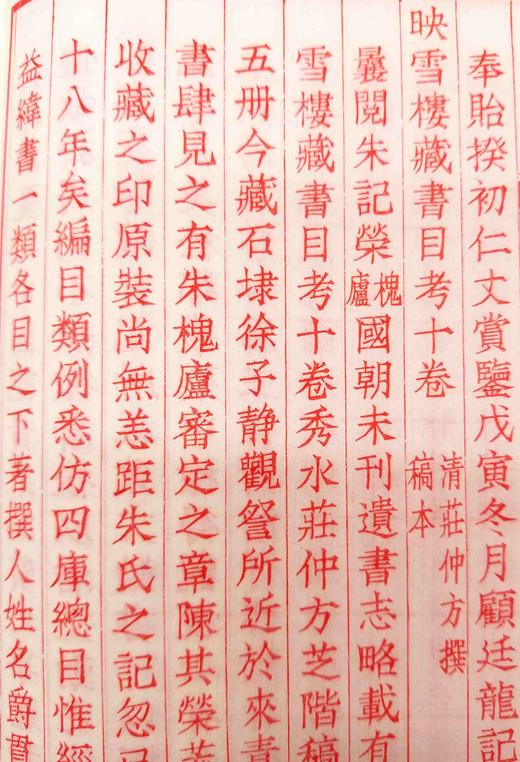 奉貽揆初仁丈賞鑒戊寅冬月顧廷龍記
映雪樓藏書目考十卷 清莊仲方撰 稿本
曩閱朱記榮槐廬國朝未刊遺書志略載有
雪樓藏書目考十卷秀水莊仲方芝階稿
五册今藏石埭徐子静觀詧所近於來青
書肆見之有朱槐廬審定之章陳其榮
收藏之印原裝尚無恙距朱氏之記忽已
十八年矣編目類例悉仿四庫總目惟經
益緯書一類各目之下著撰人姓名爵貫